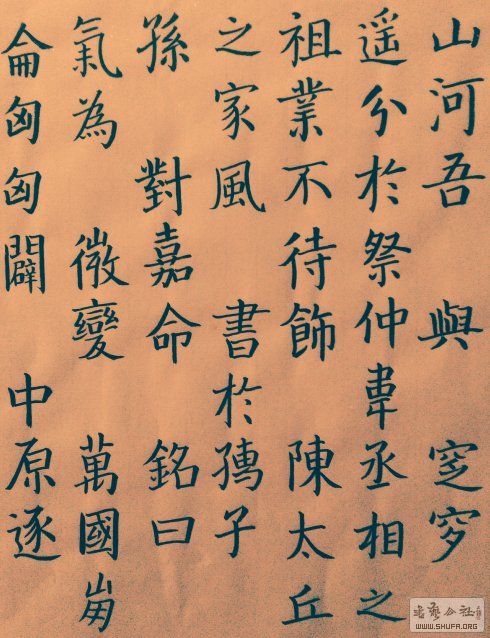 山河吾 與 窆穸
遥分於祭仲韋丞相之
祖業不待飾 陳太丘
之家風 書於子
孫 對嘉命 銘曰
氣為 微變 萬國崩
侖匈匈闢 中原逐
書藝公社
WWW.SHUFA.ORG